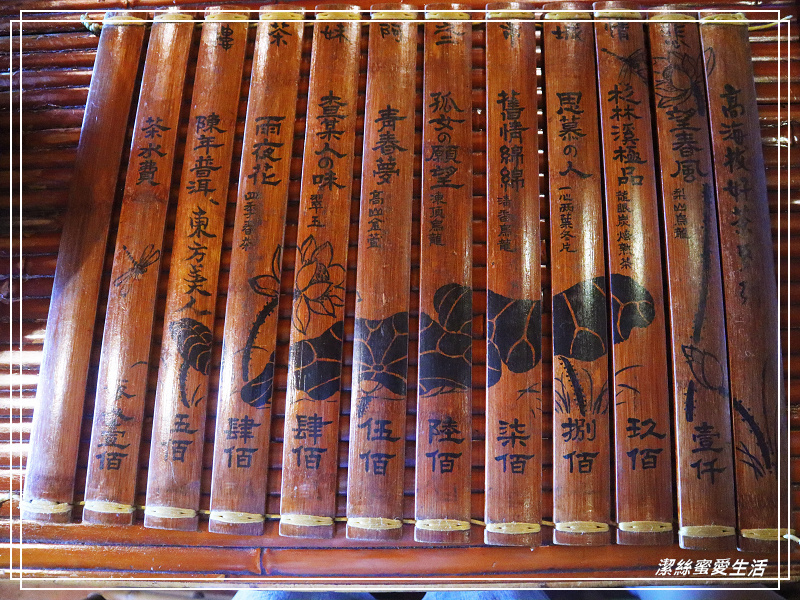 高海拔好茶
悲
望春風
梨山烏龍
壹仟
情
杉林溪極品
龍眼炭焙熟茶
玖佰
城
思慕の人
一心兩葉冬片
捌佰
市
舊情綿綿
清香烏龍
柒佰
孤女の願望
凍頂烏龍
陸佰
阿
青春夢
高山金萱
伍佰
妹
查某人の味
翠玉
肆佰
茶
雨夜花
四季春茶
肆佰
樓
陳年普洱、東方美人
五佰
茶水費
壹佰
潔絲蜜愛生活